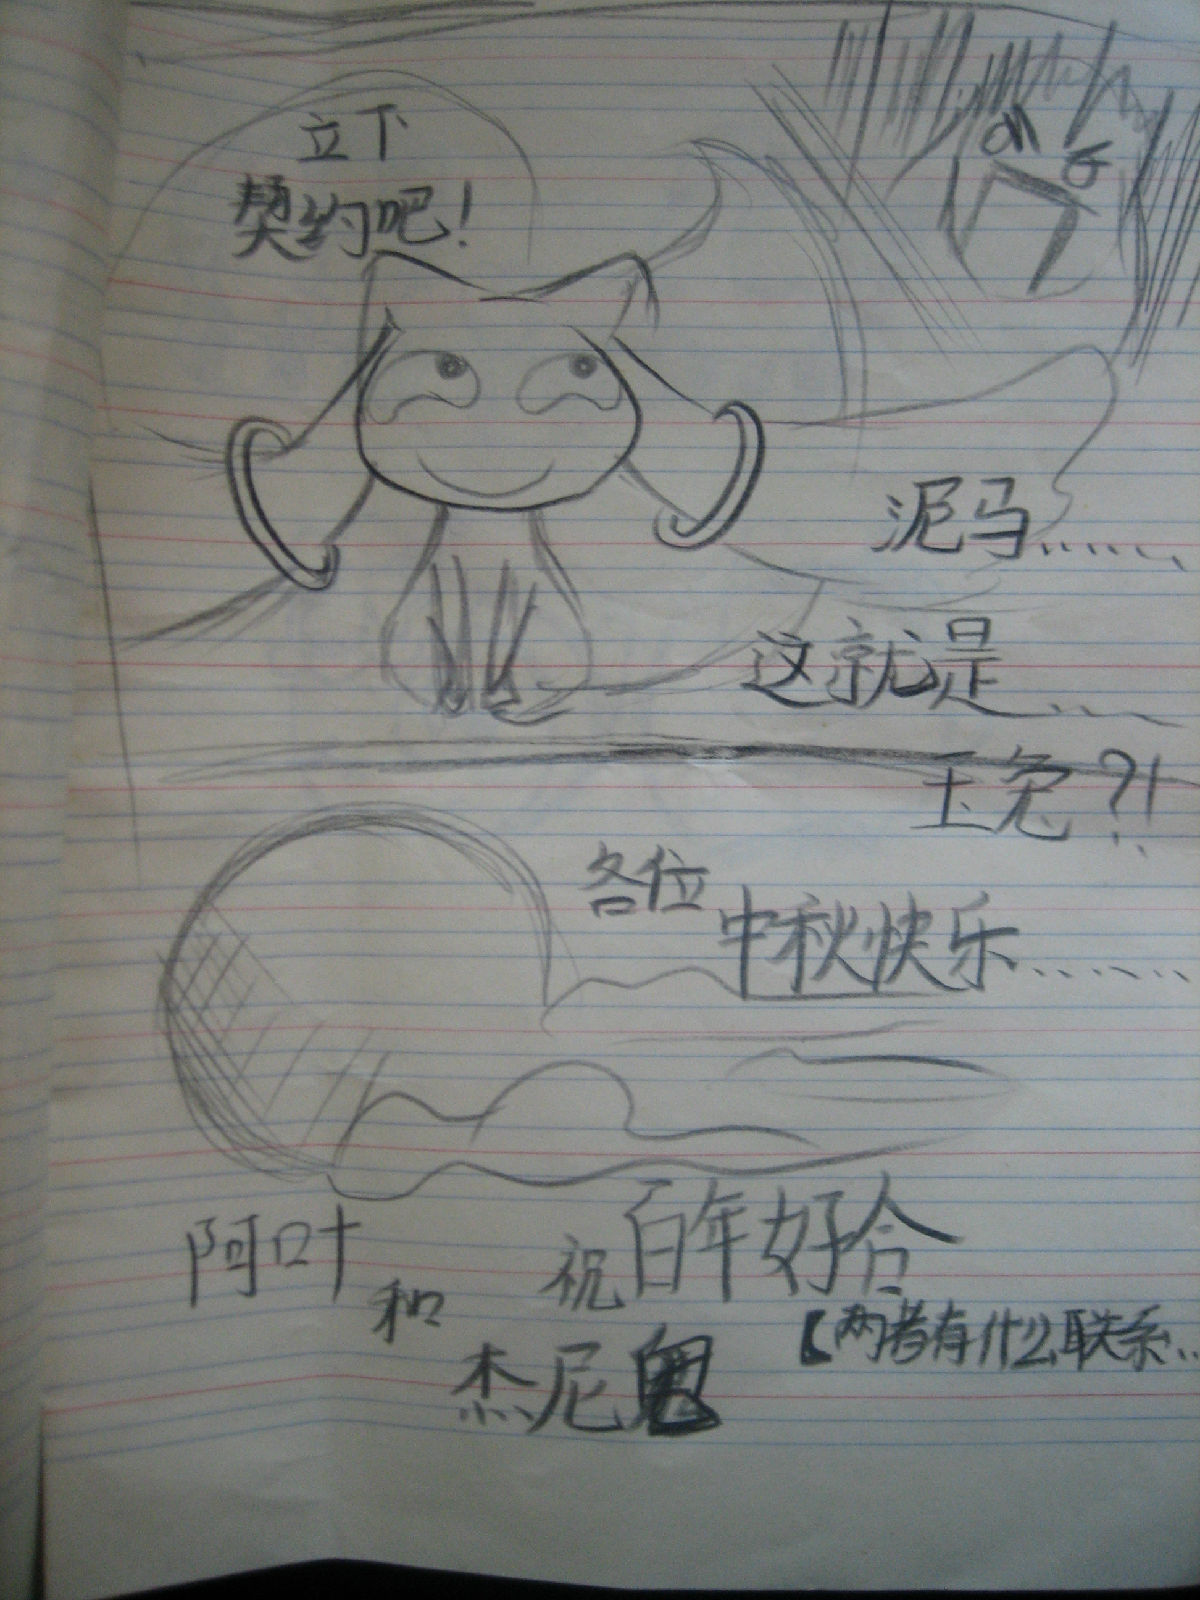 立下
契约吧！
泥马……
这就是……
玉兔？！
各位
中秋快乐……
阿叶
和
杰尼
祝
百年好合
【两者有什么联系..